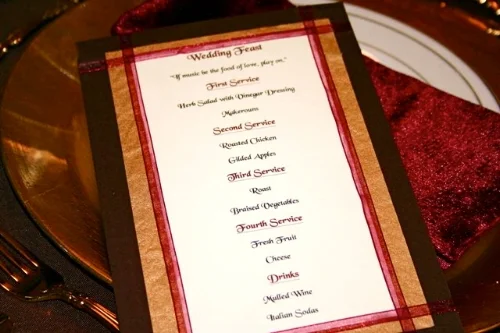 Wedding Feast
"If music be the food of love, play on."
First Service
Herb Salad with Vinegar Dressing
Makerouns
Second Service
Roasted Chicken
Gilded Apples
Third Service
Roast
Braised Vegetables
Fourth Service
Fresh Fruit
Cheese
Drinks
Mulled Wine
Italian Sodas